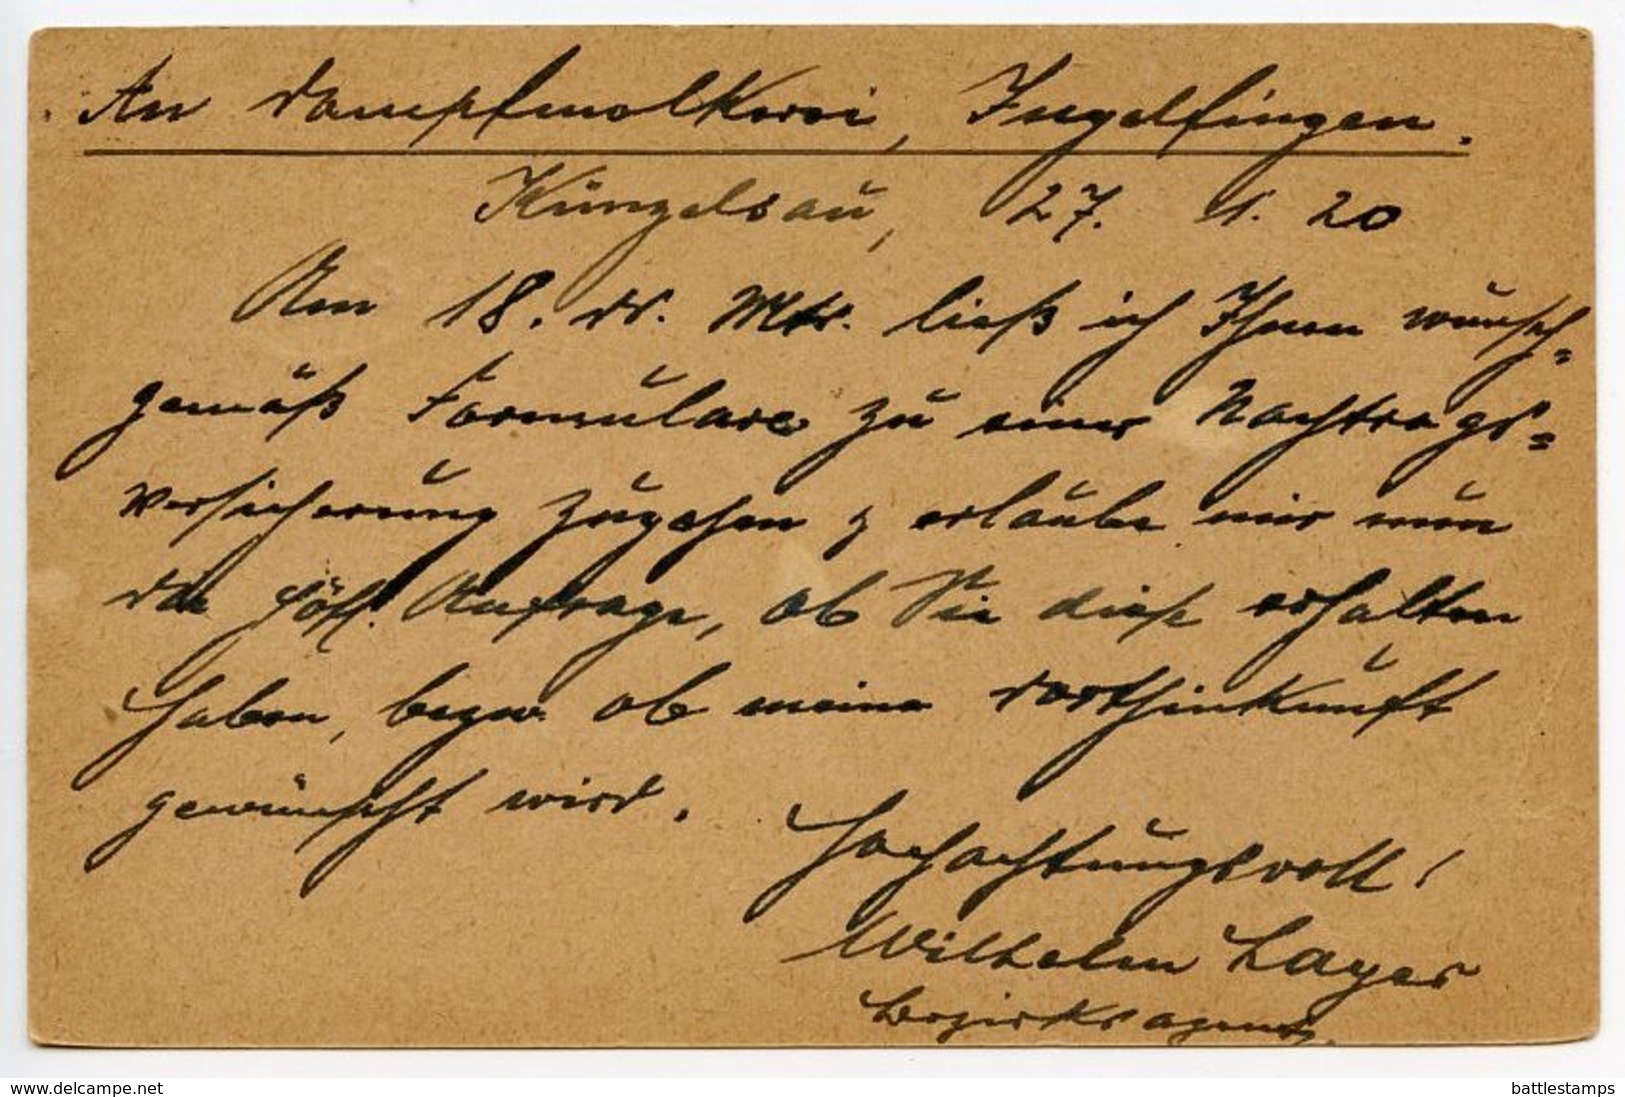 An Dampfmolkerei, Ingelfingen.
Künzelsau, 27. 1. 20
Am 18. ds. Mts. ließ ich Ihnen wunsch-
gemäß Formulare zu einer Nachtrags-
versicherung zugehen & erlaube mir nun
die höfl. Anfrage, ob Sie diese erhalten
haben, bezw. ob meine Dorthinkunft
gewünscht wird.
Hochachtungsvoll!
Wilhelm Layer
Bezirksagent.
www.delcampe.net
battlestamps